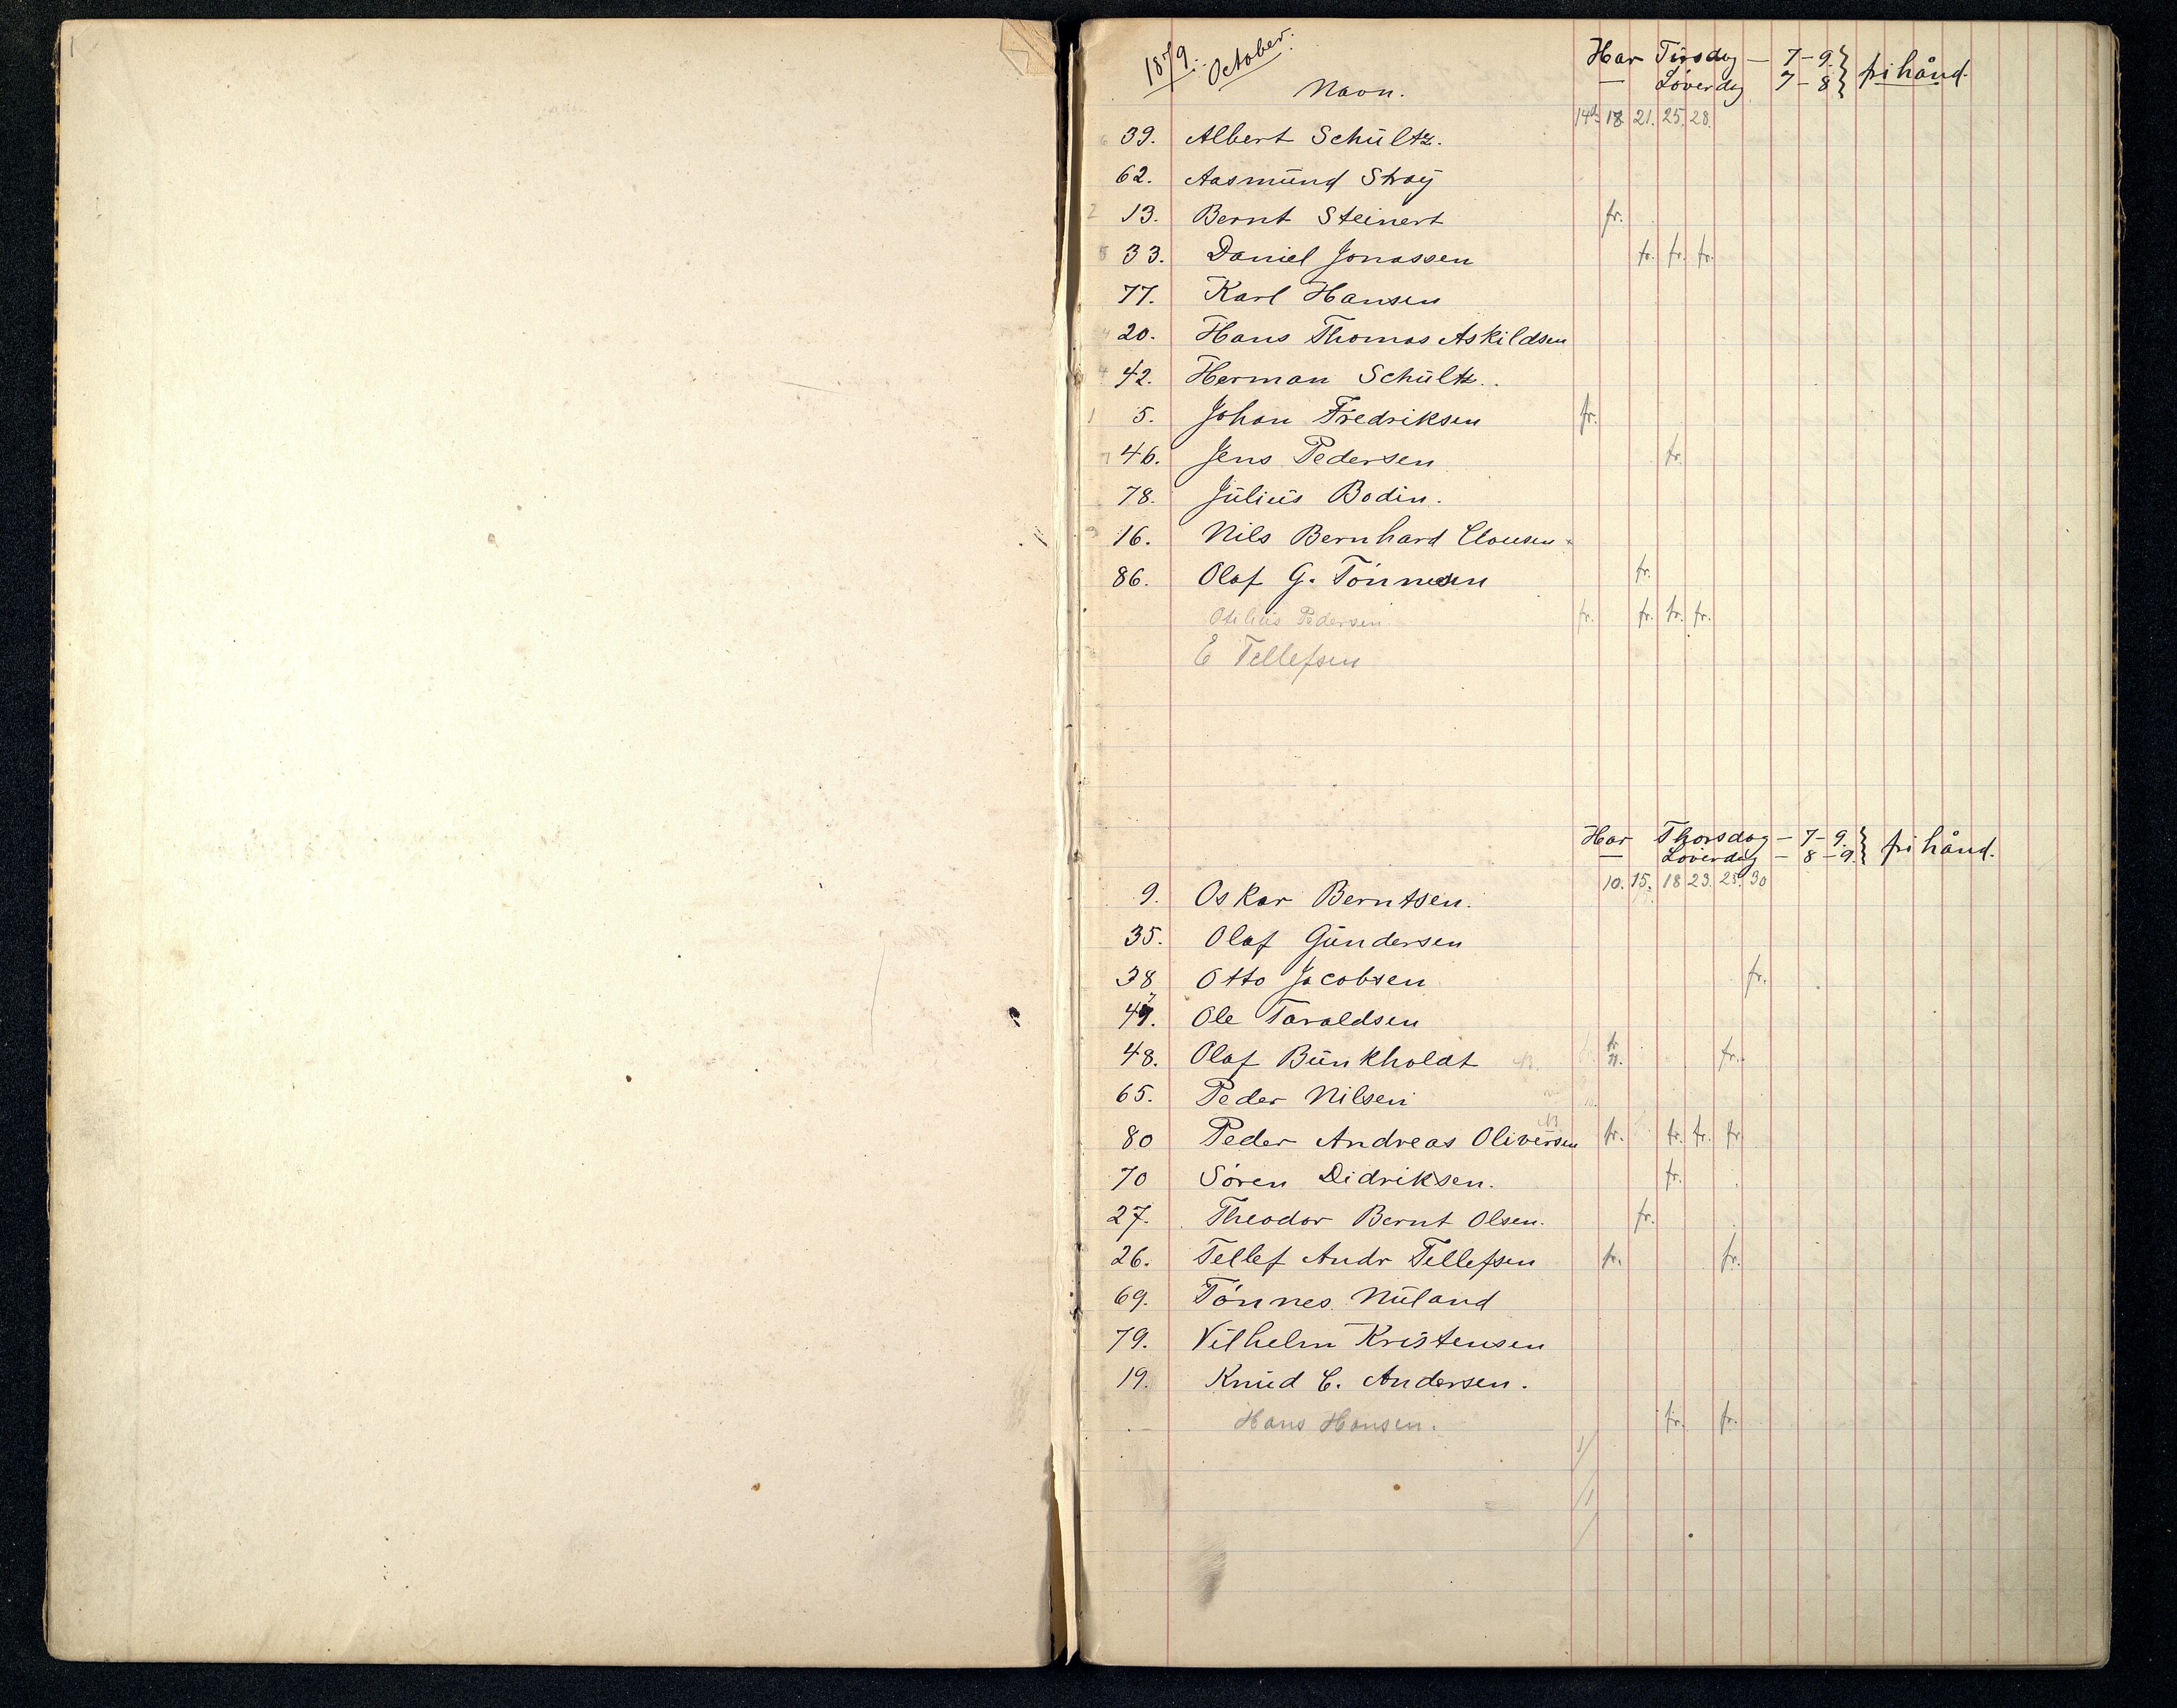 1
1879. October.
Har Tirsdag — 7–9 } frihånd.
— Löverdag 7–8 }
Navn.
14de 18 21. 25. 28.
6 39. Albert Schültz.
62. Aasmünd Strøy
2 13. Bernt Steinert fr.
5 33. Daniel Jonassen fr. fr. fr.
77. Karl Hansen
4 20. Hans Thomas Askildsen
42. Herman Schültz.
1 5. Johan Fredriksen fr.
7 46. Jens Pedersen fr.
78. Jülius Bodin.
3 16. Nils Bernhard Clausen
86. Olaf G. Tönnesen fr.
Otilius Pedersen fr. fr. fr. fr.
E Tellefsen
Har Thorsdag — 7–9. } frihånd.
— Löverdag — 8–9. }
10. 15. 18 23. 25. 30
9. Oskar Berntsen.
35. Olaf Gündersen
38 Otto Jacobsen fr.
47. Ole Taraldsen
48. Olaf Bünkholdt fr. fr.
65. Peder Nilsen
80 Peder Andreas Oliversen fr. fr. fr. fr
70 Sören Didriksen. fr.
27. Theodor Bernt Olsen. fr.
26. Tellef Andr Tellefsen fr. fr.
69. Tönnes Nüland
79. Vilhelm Kristensen
19. Knüd C. Andersen.
Hans Hansen. fr. fr.